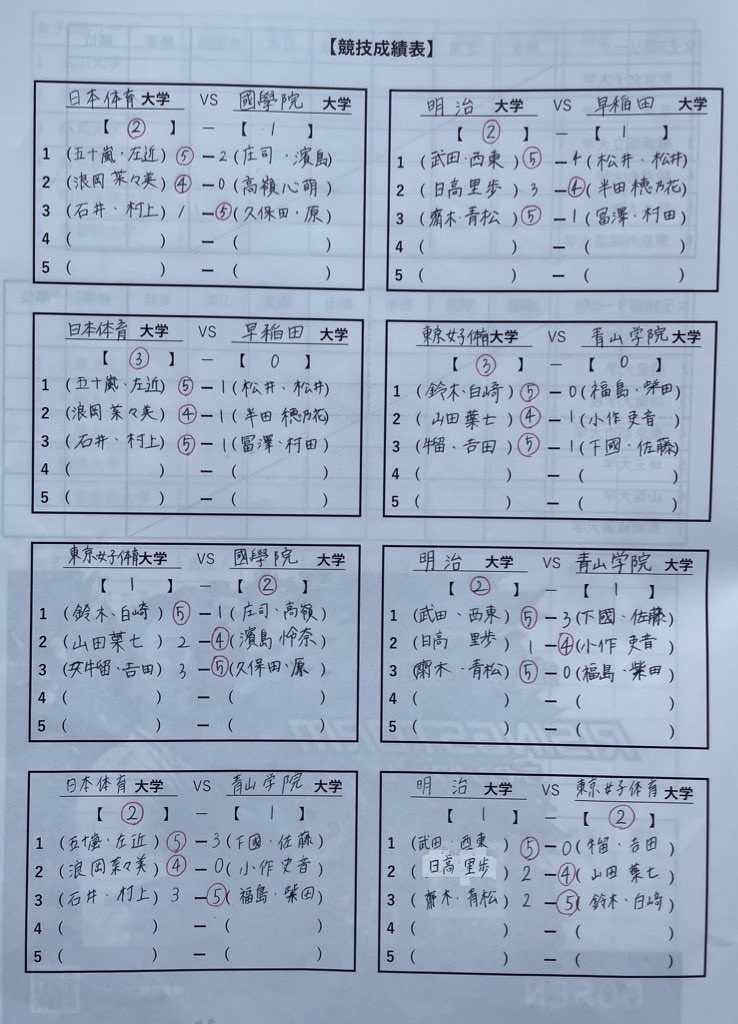 【競技成績表】
日本体育大学 VS 國學院大学
【 ② 】 － 【 1 】
1 (五十嵐・左近) ⑤－2 (庄司・濱島)
2 (浪岡 菜々美) ④－0 (高嶺心萌)
3 (石井・村上) 1－⑤ (久保田・原)
4 ( ) － ( )
5 ( ) － ( )
明治大学 VS 早稲田大学
【 ② 】 － 【 1 】
1 (武田・西東) ⑤－4 (松井・松井)
2 (日高里歩) 3－④ (半田 穂乃花)
3 (齋木・青松) ⑤－1 (冨澤・村田)
4 ( ) － ( )
5 ( ) － ( )
日本体育大学 VS 早稲田大学
【 ③ 】 － 【 0 】
1 (五十嵐・左近) ⑤－1 (松井・松井)
2 (浪岡 菜々美) ④－1 (半田 穂乃花)
3 (石井・村上) ⑤－1 (冨澤・村田)
4 ( ) － ( )
5 ( ) － ( )
東京女子体育大学 VS 青山学院大学
【 ③ 】 － 【 0 】
1 (鈴木・白崎) ⑤－0 (福島・柴田)
2 (山田葉七) ④－1 (小作吏音)
3 (牛留・吉田) ⑤－1 (下國・佐藤)
4 ( ) － ( )
5 ( ) － ( )
東京女子体育大学 VS 國學院大学
【 1 】 － 【 ② 】
1 (鈴木・白崎) ⑤－1 (庄司・高嶺)
2 (山田葉七) 2－④ (濱島怜奈)
3 (牛留・吉田) 3－⑤ (久保田・原)
4 ( ) － ( )
5 ( ) － ( )
明治大学 VS 青山学院大学
【 ② 】 － 【 1 】
1 (武田・西東) ⑤－3 (下國・佐藤)
2 (日高 里歩) 1－④ (小作吏音)
3 (齋木・青松) ⑤－0 (福島・柴田)
4 ( ) － ( )
5 ( ) － ( )
日本体育大学 VS 青山学院大学
【 ② 】 － 【 1 】
1 (五十嵐・左近) ⑤－3 (下國・佐藤)
2 (浪岡菜々美) ④－0 (小作吏音)
3 (石井・村上) 3－⑤ (福島・柴田)
4 ( ) － ( )
5 ( ) － ( )
明治大学 VS 東京女子体育大学
【 1 】 － 【 ② 】
1 (武田・西東) ⑤－0 (牛留・吉田)
2 日高里歩 2－④ (山田葉七)
3 (齋木・青松) 2－⑤ (鈴木・白崎)
4 ( ) － ( )
5 ( ) － ( )